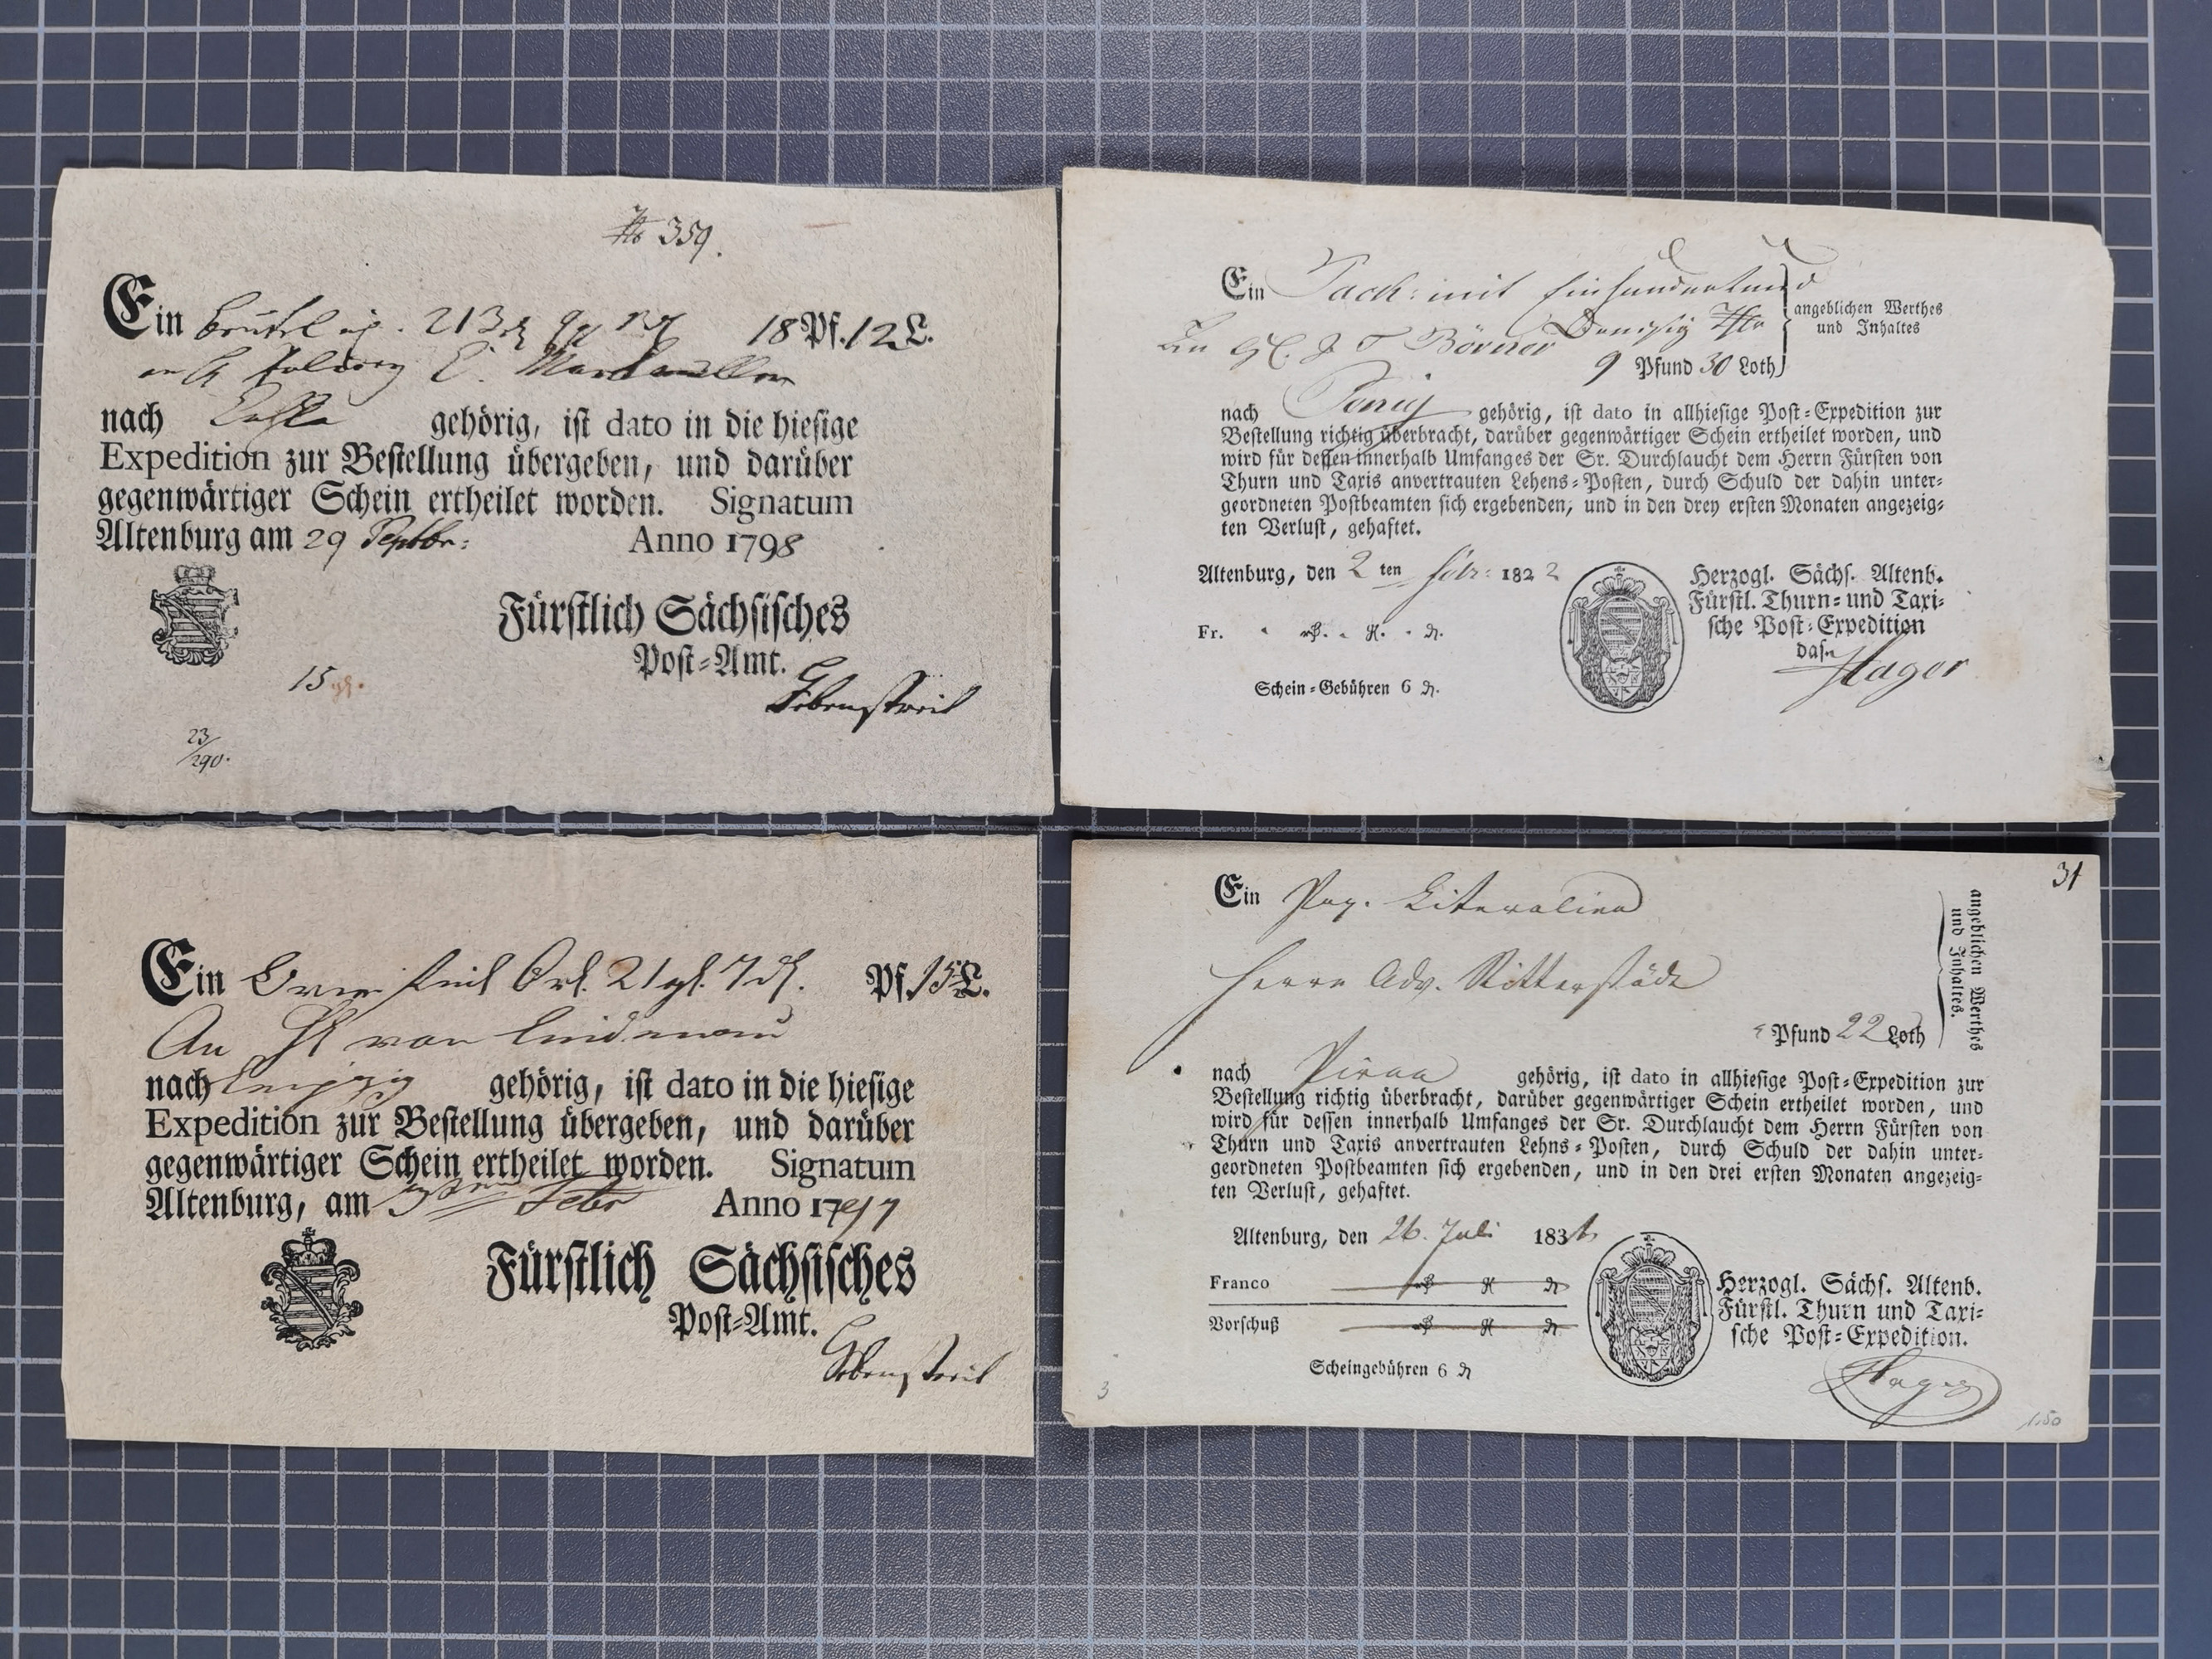 359.
Ein 213 18 Pf. 12 L.
nach gehörig, ist dato in die hiesige
Expedition zur Bestellung übergeben, und darüber
gegenwärtiger Schein ertheilet worden. Signatum
Altenburg am 29 Septbr: Anno 1798
Fürstlich Sächsisches
Post-Amt.
Hebenstreit
15
23/290.
Ein Pack: mit Einhundertund
angeblichen Werthes
und Inhaltes
Börner
9 Pfund 30 Loth
nach Penig gehörig, ist dato in allhiesige Post-Expedition zur
Bestellung richtig überbracht, darüber gegenwärtiger Schein ertheilet worden, und
wird für dessen innerhalb Umfanges der Sr. Durchlaucht dem Herrn Fürsten von
Thurn und Taxis anvertrauten Lehens-Posten, durch Schuld der dahin unter-
geordneten Postbeamten sich ergebenden, und in den drey ersten Monaten angezeig-
ten Verlust, gehaftet.
Altenburg, den 2 ten Febr: 1822
Herzogl. Sächs. Altenb.
Fürstl. Thurn- und Taxi-
sche Post-Expedition
das.
Hager
Fr.
Schein-Gebühren 6
Ein 21 gl. 7 Pf. 15 L.
An von Lindenau
nach Leipzig gehörig, ist dato in die hiesige
Expedition zur Bestellung übergeben, und darüber
gegenwärtiger Schein ertheilet worden. Signatum
Altenburg, am Febr Anno 1797
Fürstlich Sächsisches
Post-Amt.
Hebenstreit
31
Ein Pag. Literalien
Herrn Adv. Ritterstädt
angeblichen Werthes
und Inhaltes.
Pfund 22 Loth
nach Pirna gehörig, ist dato in allhiesige Post-Expedition zur
Bestellung richtig überbracht, darüber gegenwärtiger Schein ertheilet worden, und
wird für dessen innerhalb Umfanges der Sr. Durchlaucht dem Herrn Fürsten von
Thurn und Taxis anvertrauten Lehns-Posten, durch Schuld der dahin unter-
geordneten Postbeamten sich ergebenden, und in den drei ersten Monaten angezeig-
ten Verlust, gehaftet.
Altenburg, den 26. Juli 183
Franco
Vorschuß
Herzogl. Sächs. Altenb.
Fürstl. Thurn und Taxi-
sche Post-Expedition.
Hager
Scheingebühren 6
3
1.50